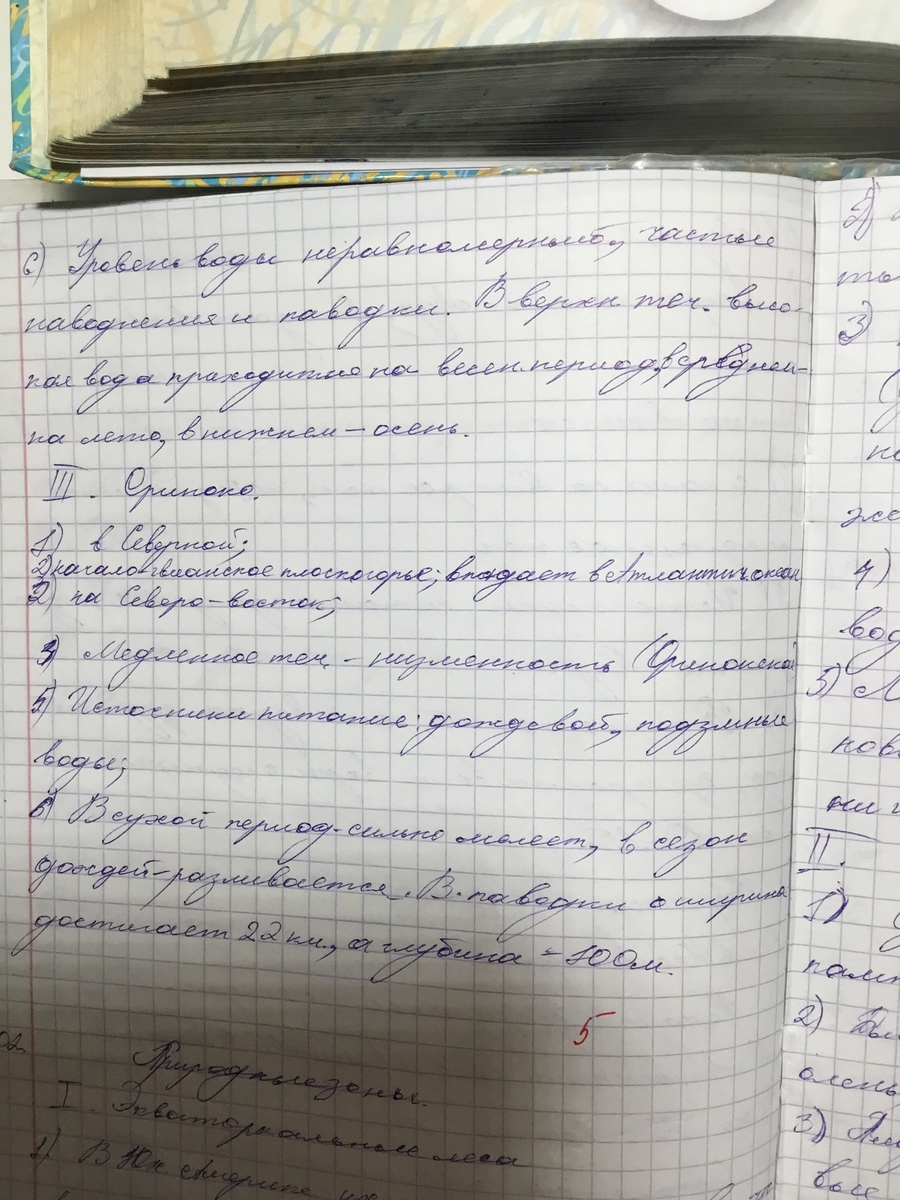 6) Уровень воды неравномерный, частые
наводнения и паводки. В верхн теч. высо-
кая вода приходится на весен.период, в среднем-
на лето, в нижнем – осень.
III. Ориноко.
1) в Северной;
2) начало гвианское плоскогорье; впадает в Атлантич. океан
2) на Северо-восток;
3) Медленное теч. - низменность (Оринокская
5) Источники питание: дождевой, подзмные
воды;
6) В сухой период-сильно мелеет, в сезон
дождей-разливается. В паводки ширина
достигает 22 км., а глубина - 100м.
5
02
Природные зоны.
I. Экваториальные леса
1) В Юж. Америке
2)
3)
4)
вод
5)
нов
II.
1)
2)
олень
3)
выс